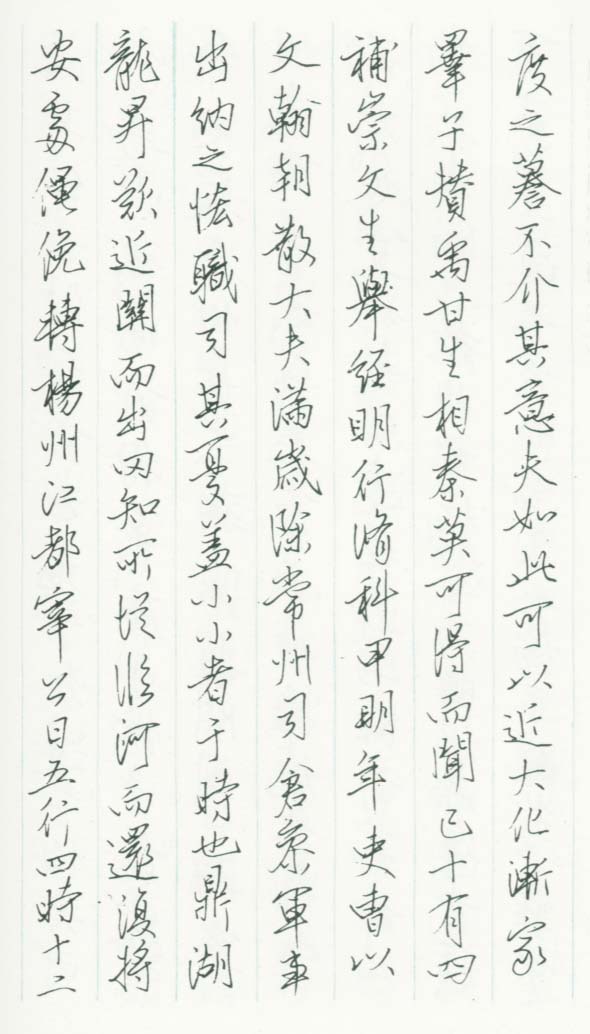 度之不介其意夫如此可以近大化漸家
子賛禹甘生相秦莫可得而聞已十有四
補崇文生舉經明行脩科甲明年吏曹以
文翰朝散大夫滿歲除常州司倉叅軍事
出納之恡職司其憂盖小小者于時也鼎湖
龍昇欻近關而出罔知所從臨河而還復將
安處僶俛轉楊州江都宰公日五行四時十二